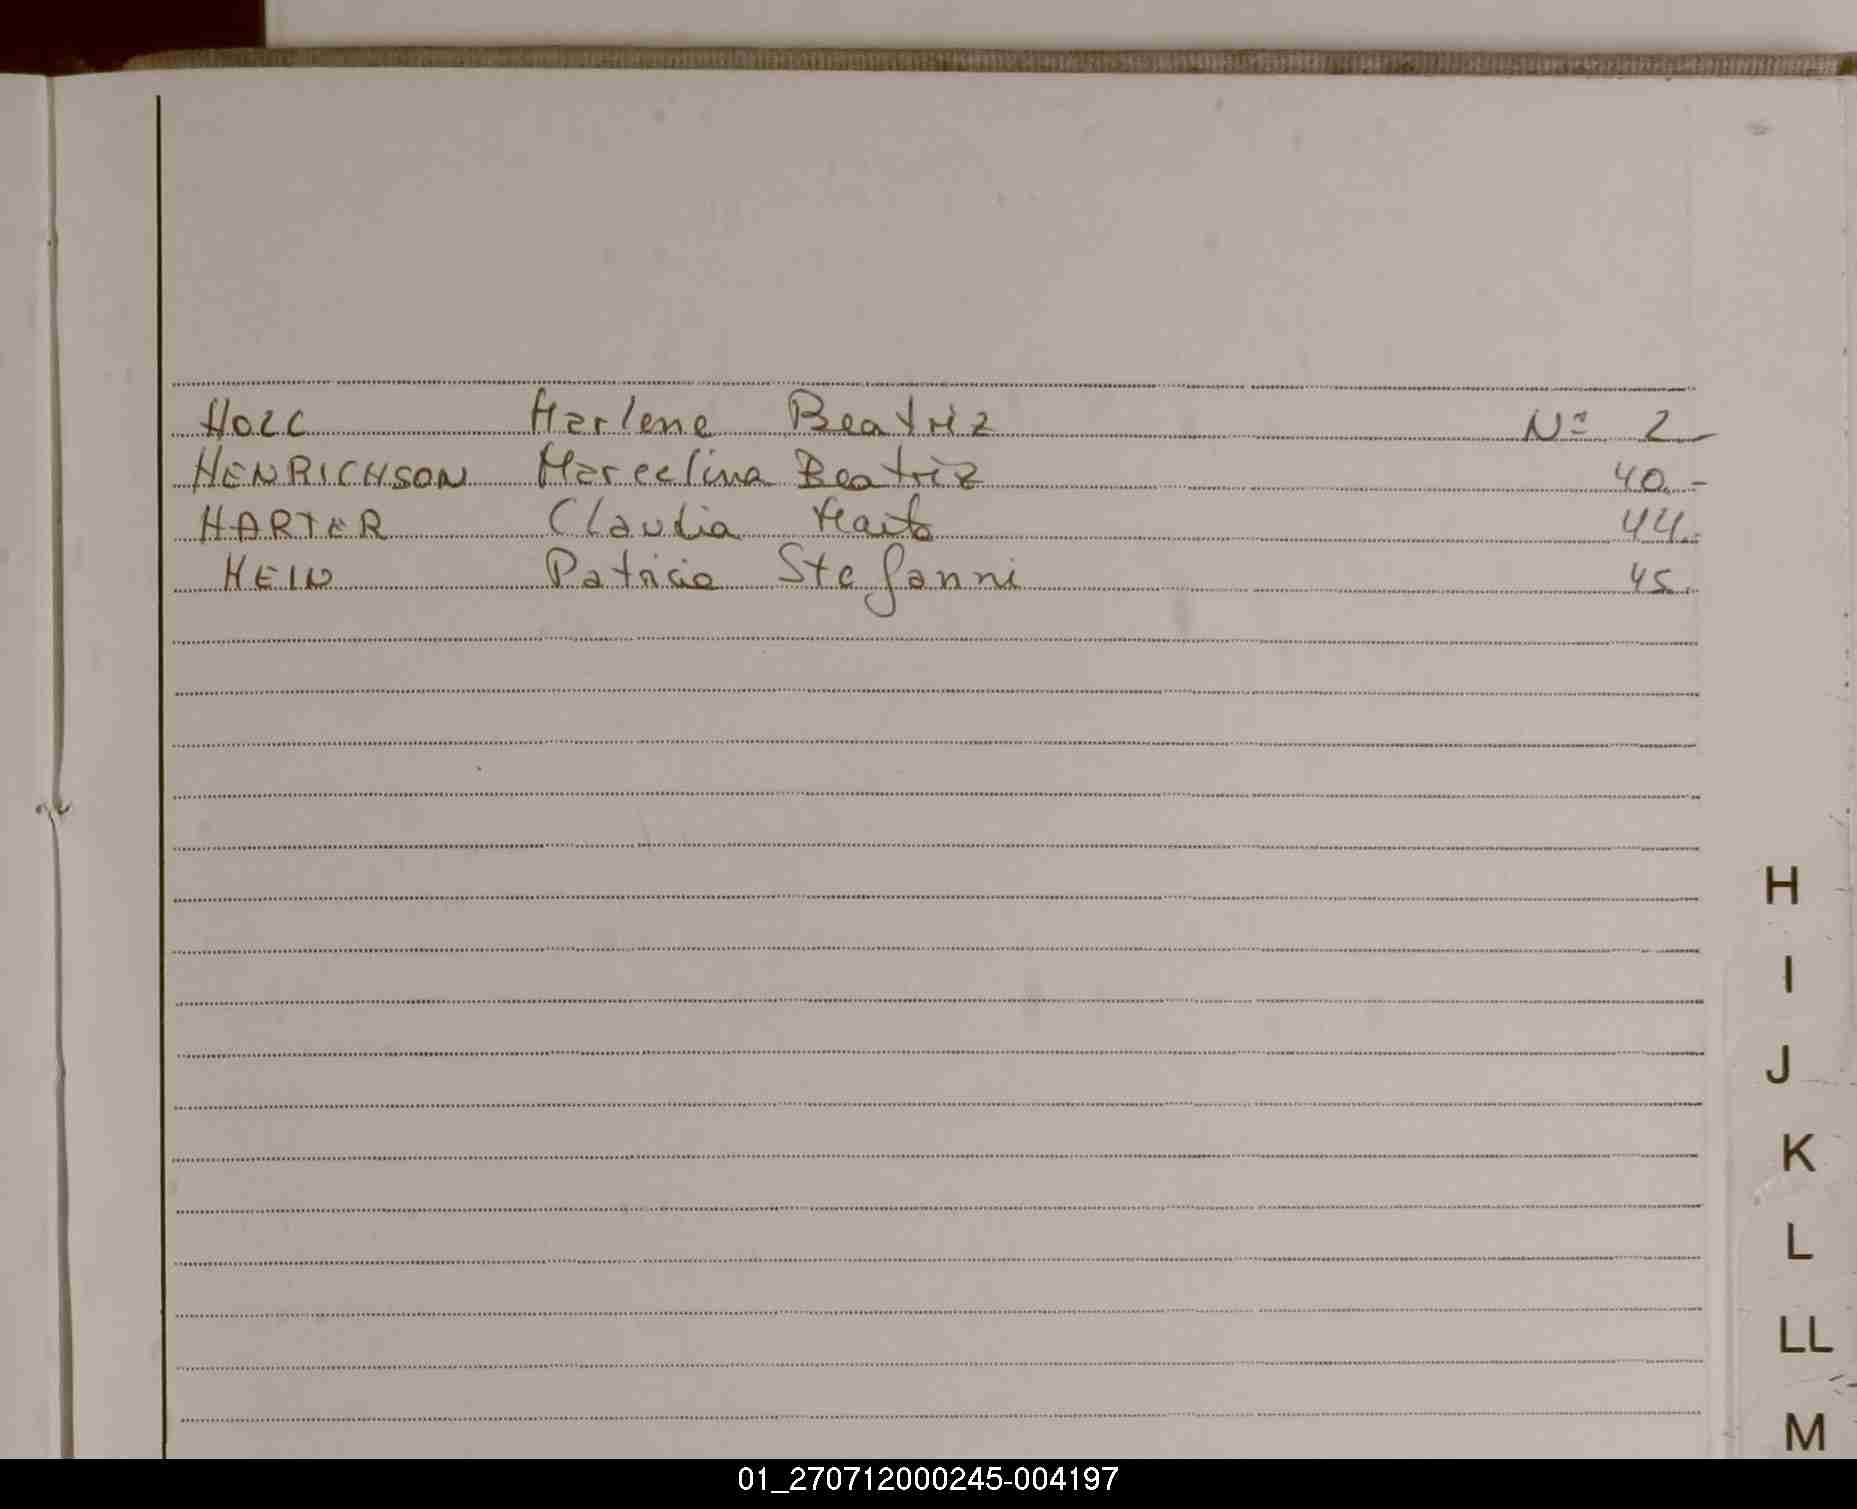 HOLC Marlene Beatriz Nº 2
HENRICHSON Marcelina Beatriz 40.-
HARTER Claudia 44.-
HEIN Patricia Stefanni 45.
H
I
J
K
L
LL
M
01_270712000245-004197